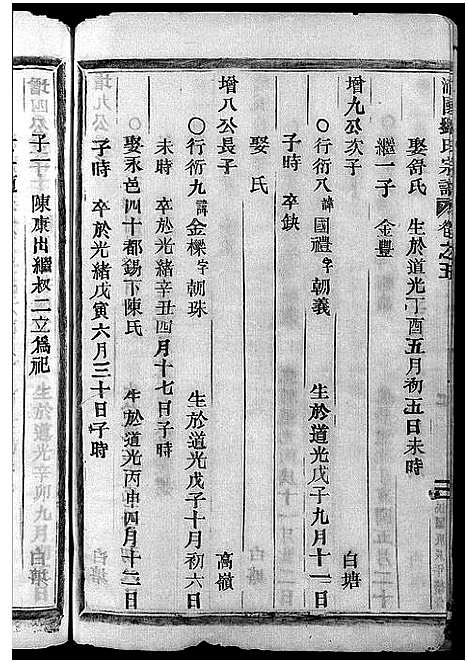 宗譜 卷之五
娶舒氏 生於道光丁酉五月初五日未時
繼一子 金豐
白塘
增九公次子
〇行衍八諱國禮字朝義 生於道光戊子九月十一日
子時 卒缺
娶氏
高嶺
增八公長子
〇行衍九諱金樑字朝珠 生於道光戊子十月初六日
未時 卒於光緒辛丑四月十七日子時
〇娶永邑四十都錫下陳氏 生於道光丙申四月十二日
子時 卒於光緒戊寅六月三十日子時
子二 陳康出繼叔二立爲祀